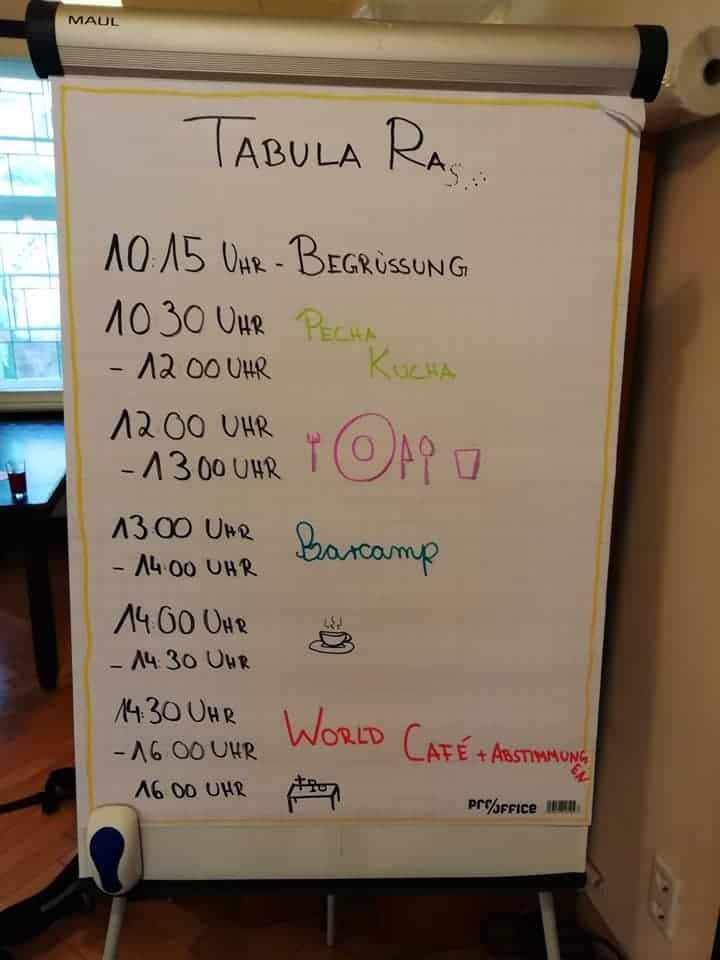 MAUL
TABULA RAS
10:15 UHR - BEGRÜSSUNG
10 30 UHR PECHA
- 12 00 UHR KUCHA
12 00 UHR
- 13 00 UHR
13 00 UHR Barcamp
- 14:00 UHR
14:00 UHR
- 14:30 UHR
14:30 UHR WORLD CAFÉ + ABSTIMMUNG
EN
- 16 00 UHR
16 00 UHR
Pro/OFFICE